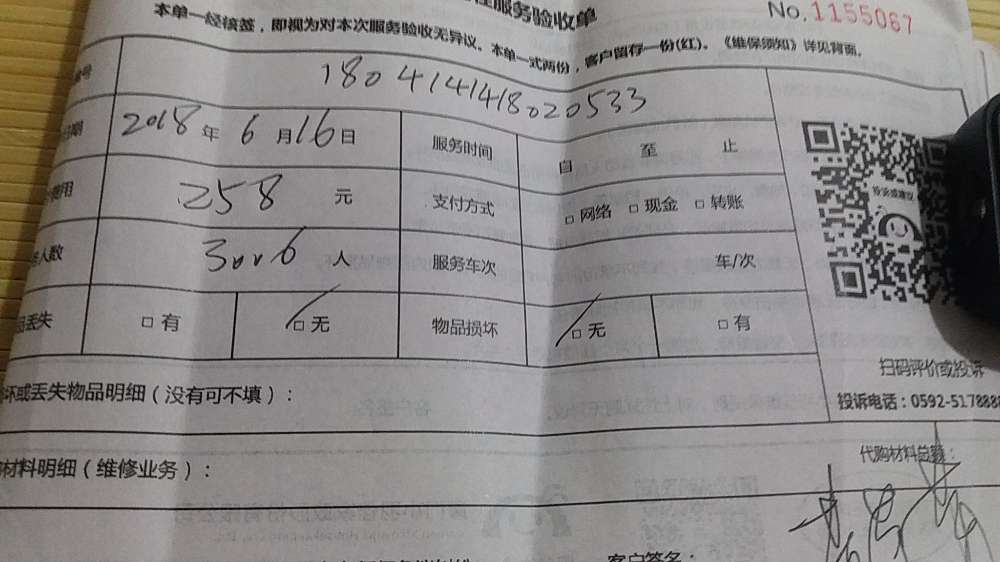 服务验收单
No.1155067
本单一经核签，即视为对本次服务验收无异议。本单一式两份，客户留存一份(红)。《维保须知》详见背面。
号 1804141418020533
日期 2018 年 6 月 16 日 服务时间 自 至 止
费用 258 元 支付方式 □ 网络 □ 现金 □ 转账
人数 3006 人 服务车次 车/次
丢失 □ 有 □ 无 物品损坏 □ 无 □ 有
扫码评价或投诉
坏或丢失物品明细（没有可不填）：
投诉电话：0592-5178888
材料明细（维修业务）：
代购材料总额：
客户签名：